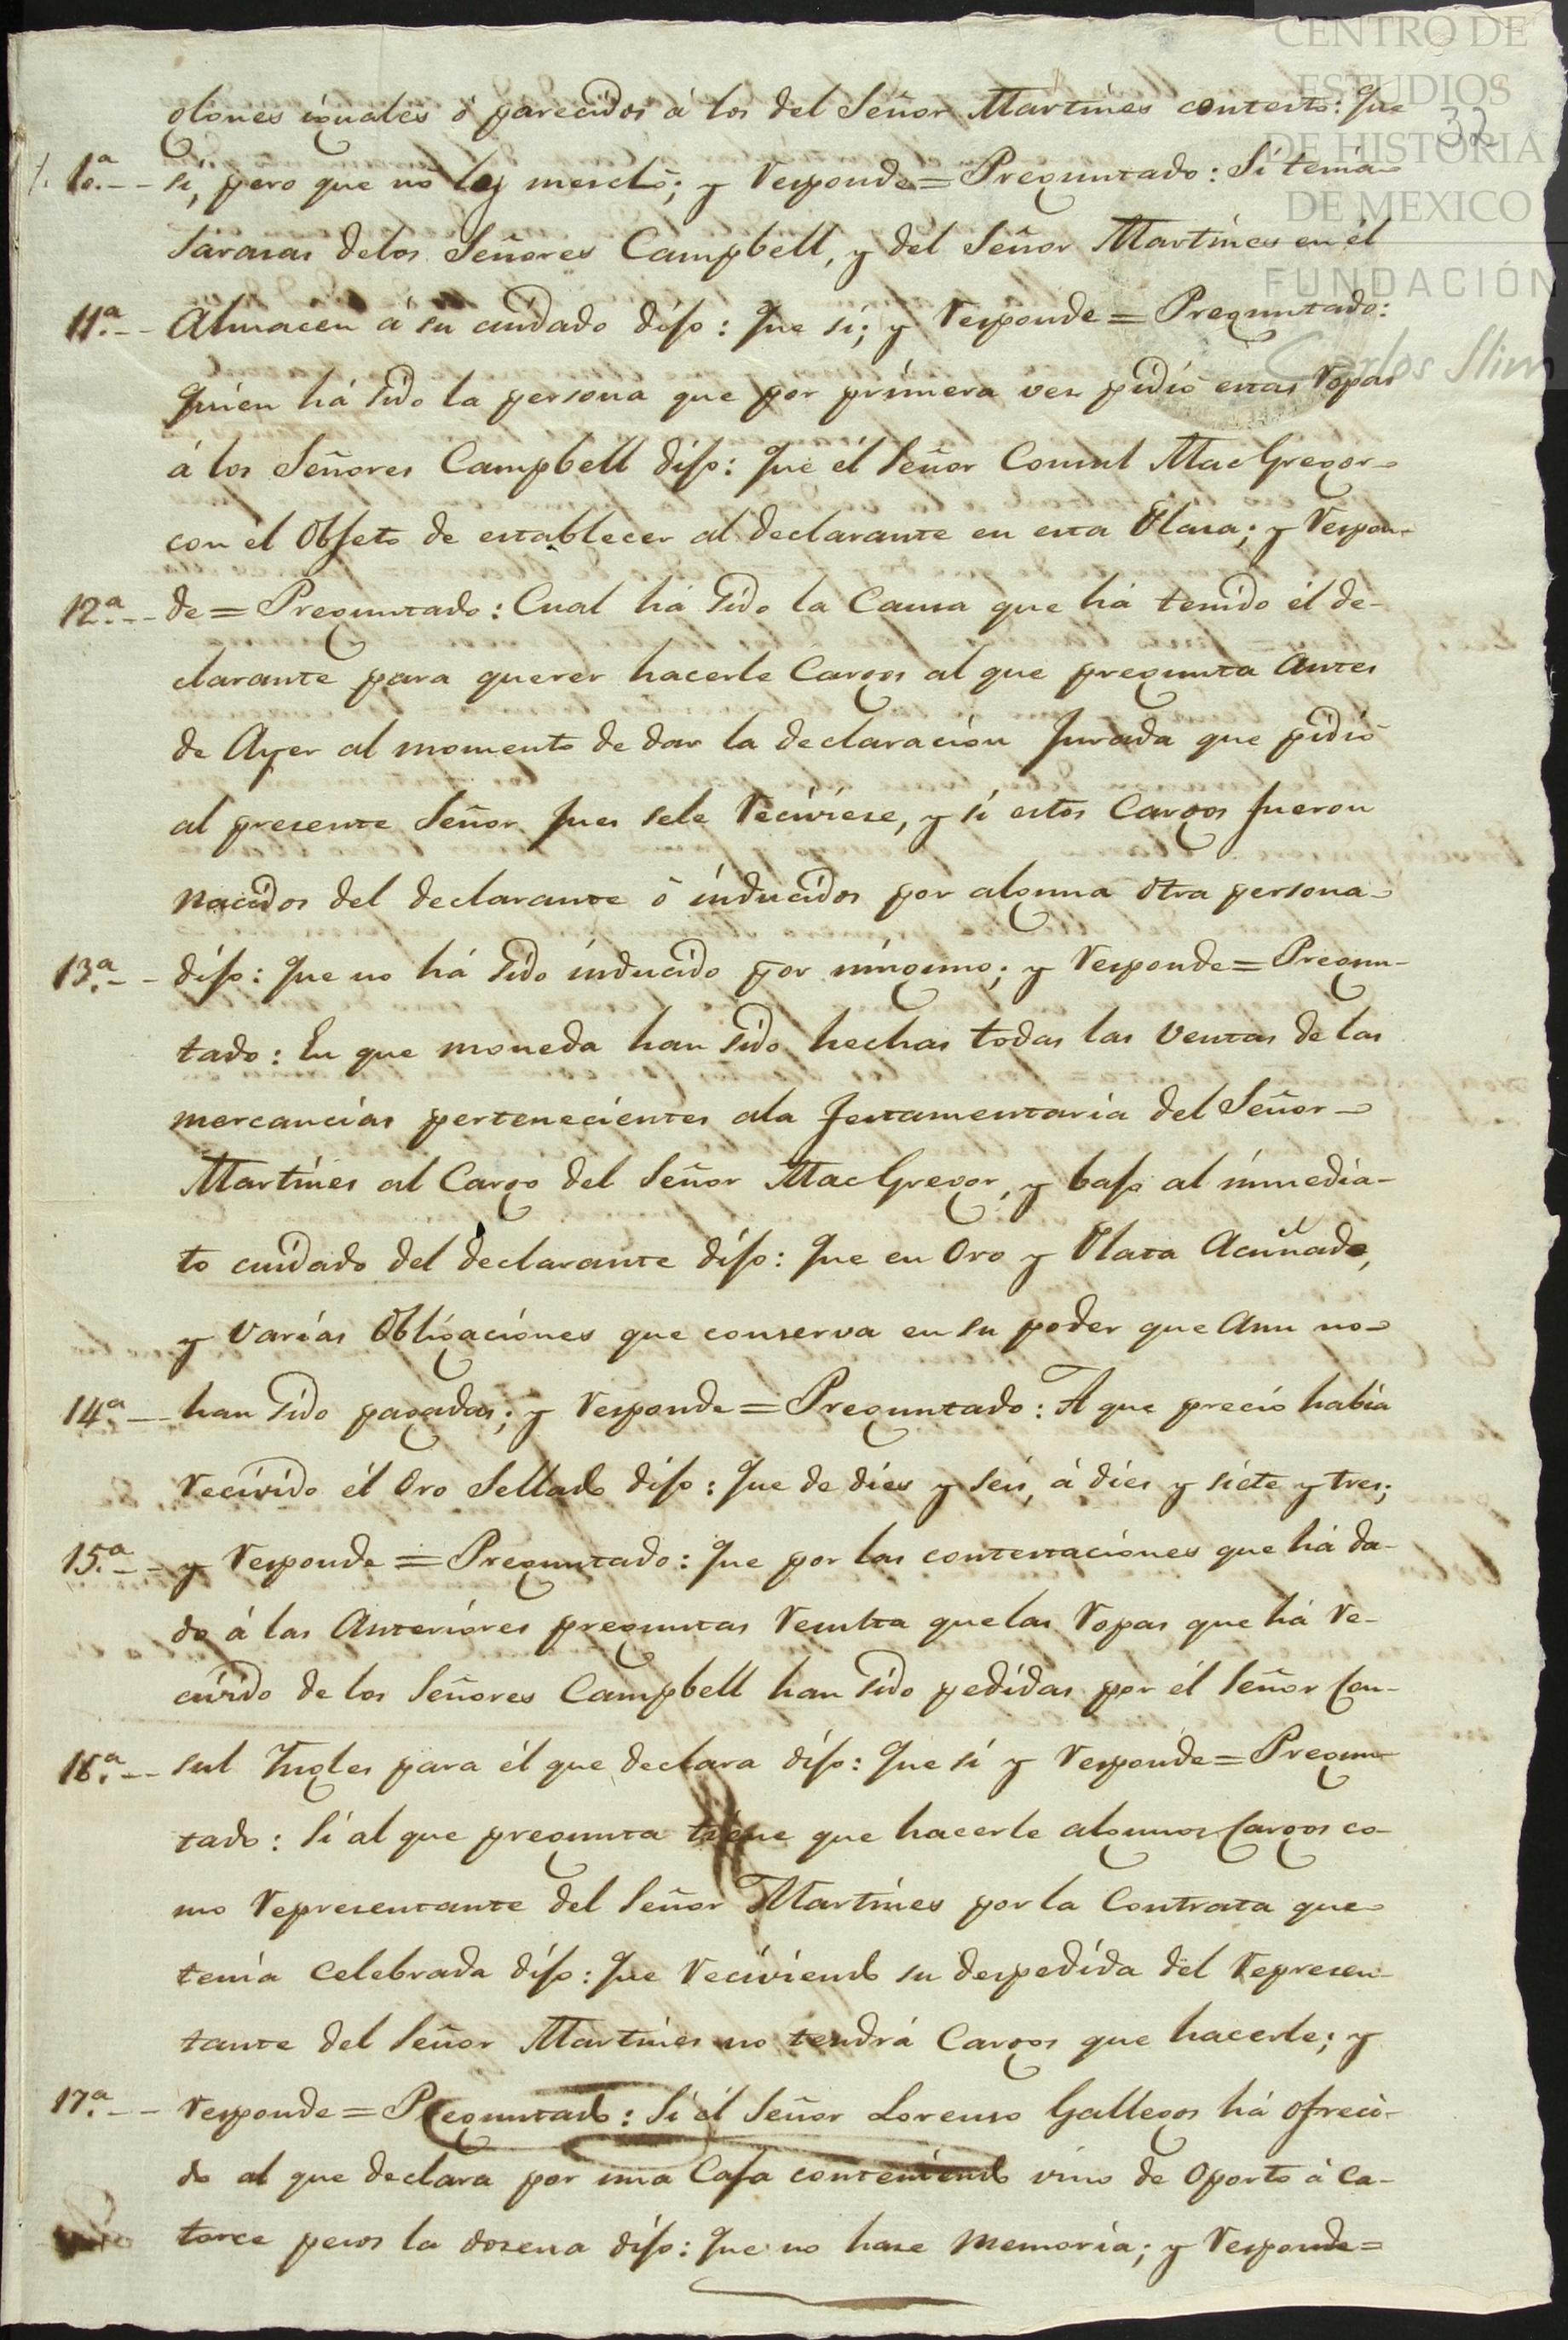 CENTRO DE
ESTUDIOS
DE HISTORIA
DE MEXICO
FUNDACIÓN
Carlos Slim
32
glones iguales ó parecidos á los del Señor Martines contestó: Que
10.ª -- si, pero que no los mescló; y Responde = Preguntado: Si tenia
Sarasas delos Señores Campbell, y del Señor Martines en él
11.ª -- Almacen á su cuidado dijo: Que si; y Responde = Preguntado:
Quien há sido la persona que por primera ves pidió estas Ropas
á los Señores Campbell dijo: Que él Señor Consul MacGregor
con él Objeto de establecer al declarante en esta Plasa; y Respon-
12.ª -- de = Preguntado: Cual há sido la Causa que há tenido él de-
clarante para querer hacerle Cargos al que pregunta Antes
de Ayer al momento de dar la declaracion Jurada que pidió
al presente Señor Jues sele Reciviese, y si estos Cargos fueron
Nacidos del declarante ó inducidos por alguna otra persona
13.ª -- dijo: Que no há sido inducido por ninguno; y Responde = Pregun-
tado: En que moneda han sido hechas todas las Ventas de las
mercancias pertenecientes ala Testamentaria del Señor
Martines al Cargo del Señor MacGregor, y bajo al inmedia-
to cuidado del declarante dijo: Que en Oro y Plata Acuñada,
y Varias Obligaciones que conserva en su poder que Aun no
14.ª -- han sido pagadas; y Responde = Preguntado: A que precio habia
Recivido él Oro Sellado dijo: Que de dies y seis, á dies y siete y tres;
15.ª -- y Responde = Preguntado: Que por las contestaciones que há da-
do á las Anteriores preguntas Resulta que las Ropas que há Re-
civido de los Señores Campbell han sido pedidas por él Señor Con-
16.ª -- sul Ingles para él que declara dijo: Que si y Responde = Pregun-
tado: Si al que pregunta tiene que hacerle algunos Cargos co-
mo Representante del Señor Martines por la Contrata que
tenia Celebrada dijo: Que Reciviendo su despedida del Represen-
tante del Señor Martines no tendrá Cargos que hacerle; y
17.ª -- Responde = Preguntado: Si él Señor Lorenso Gallegos há ofreci-
do al que declara por una Caja conteniendo vino de Oporto á Ca-
torce pesos la dosena dijo: Que no hase Memoria; y Responde =